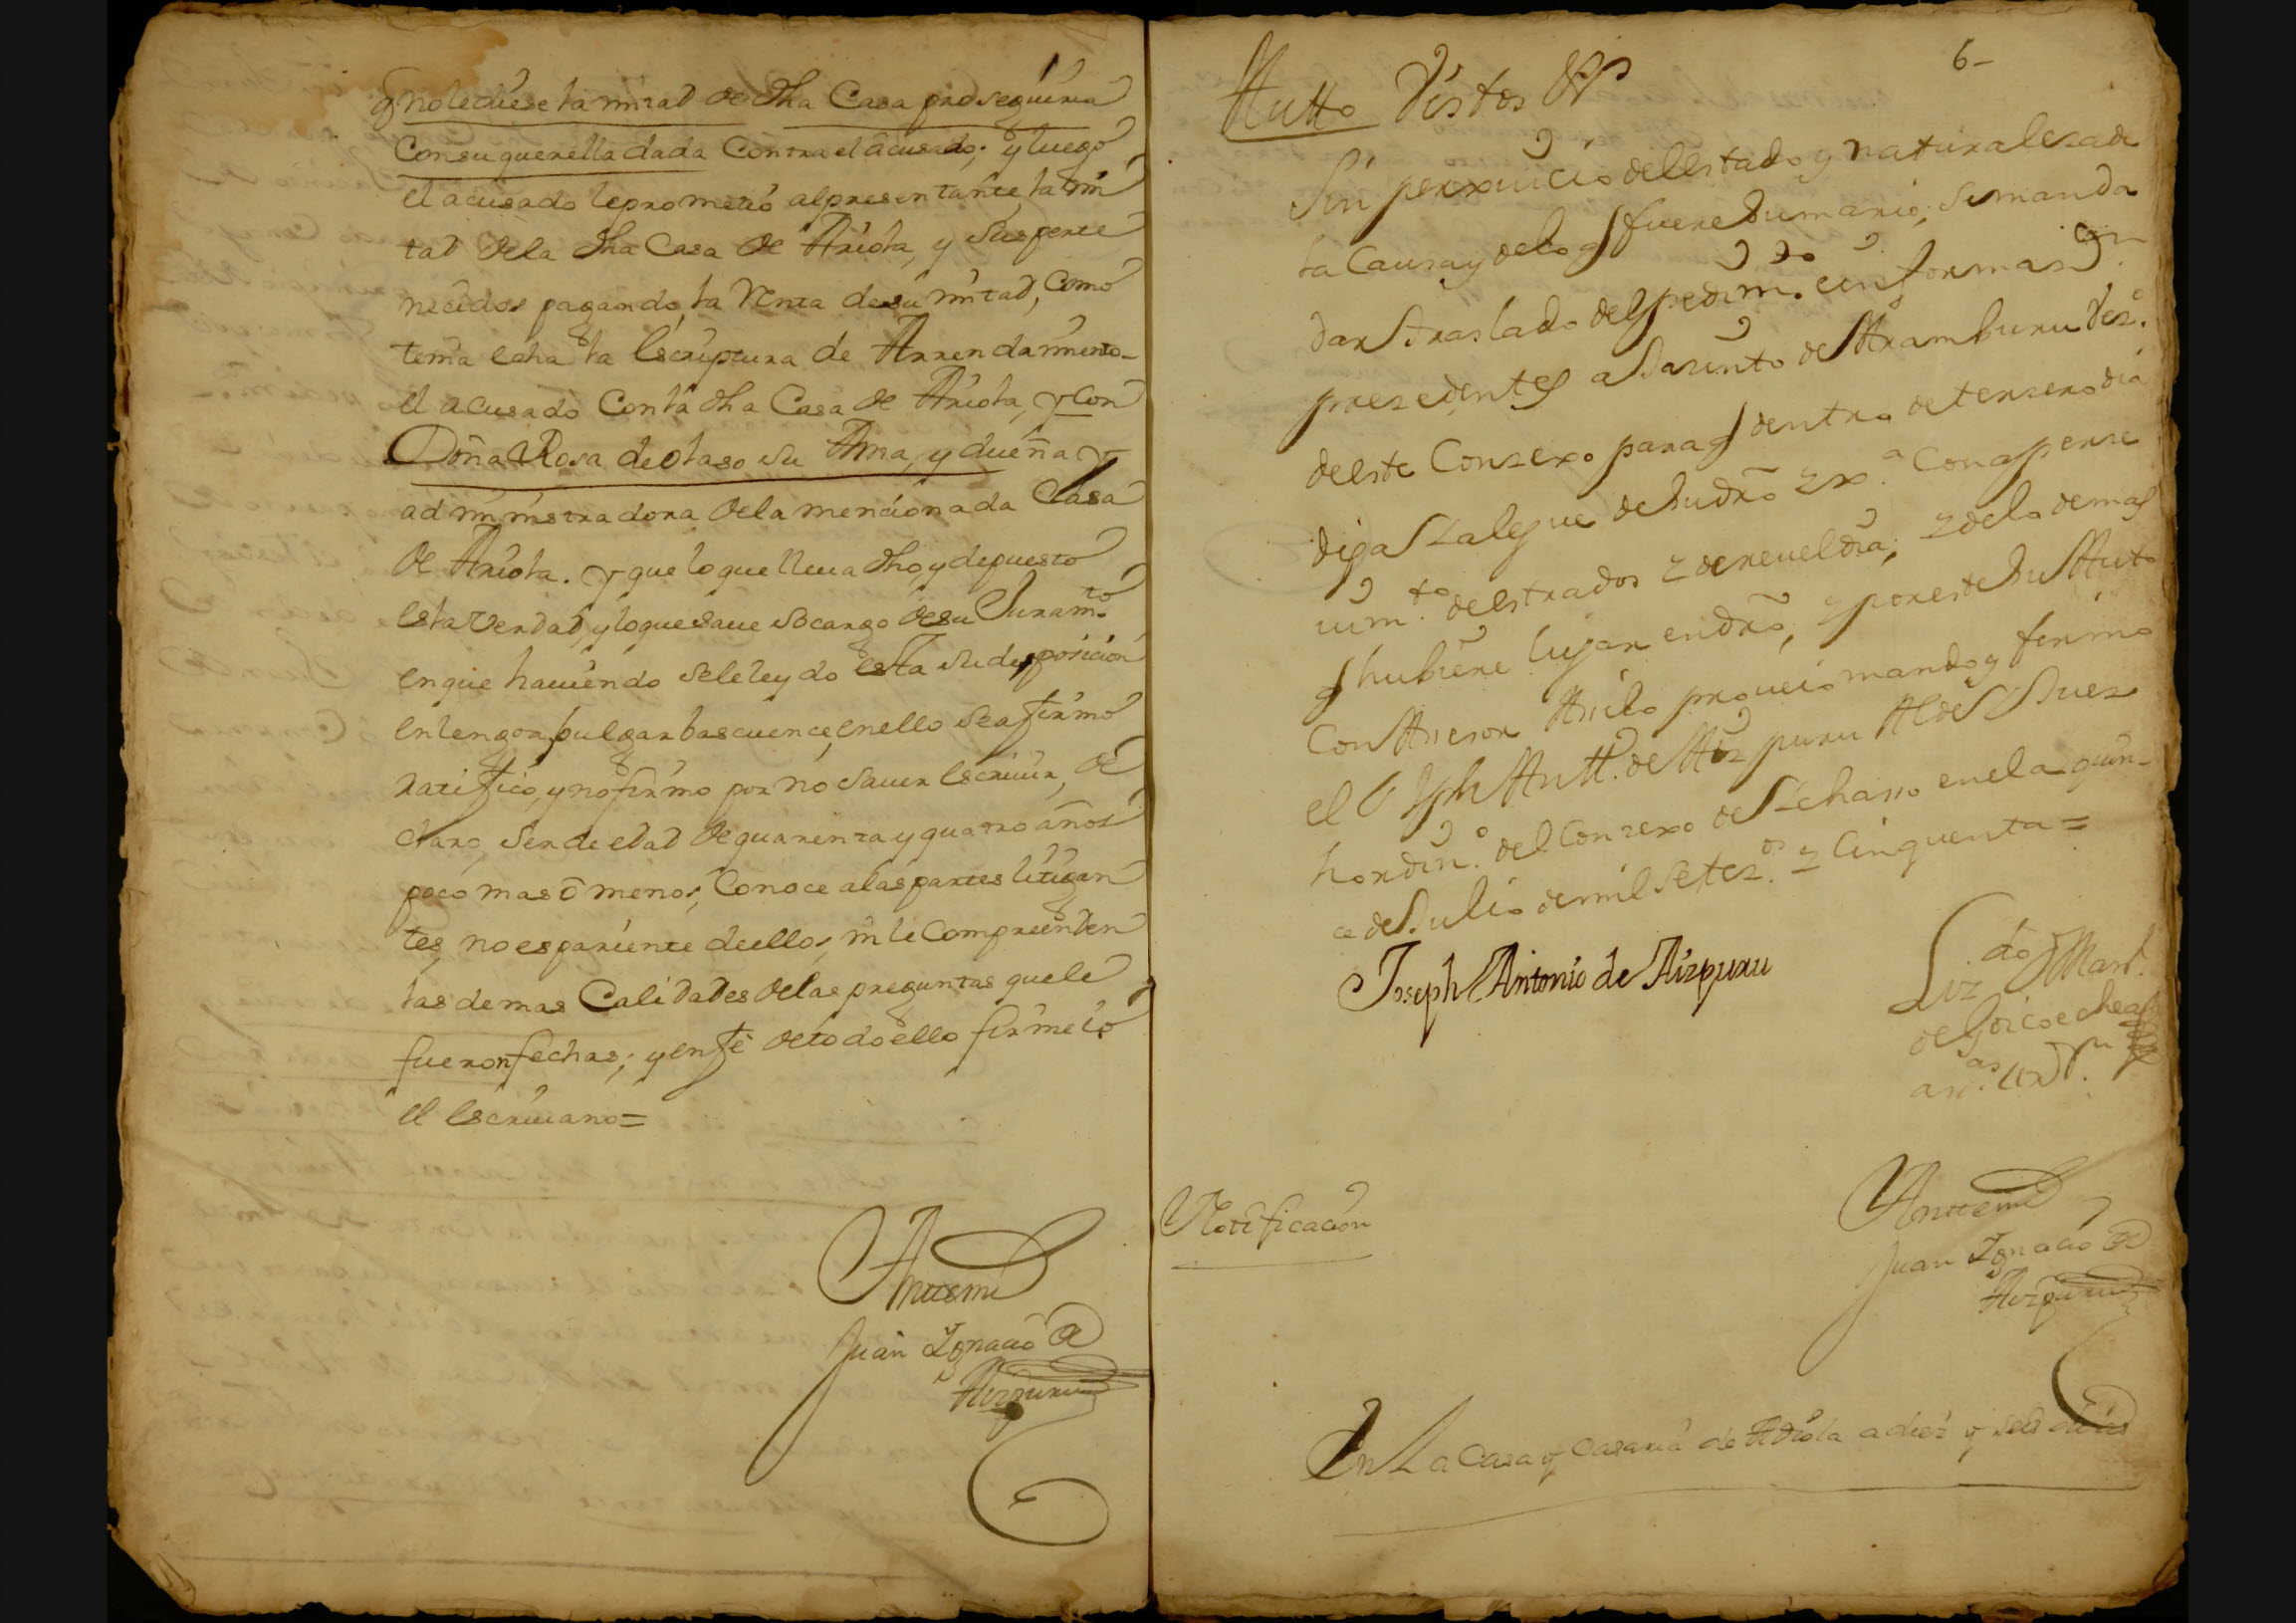 q no le diese la mitad de dha Casa proseguiria
Con su querella dada Contra el acusado; y luego
el acusado le prometio al presentante, la mi
tad de la dha Casa de Ariola, y sus perte
necidos pagando, la Renta de su mitad, Como
tenia echa la Escriptura de Arrendamiento
el acusado Con la dha Casa de Ariola, y Con
Doña Rosa de olaso su Ama, y dueña y
administradora de la mencionada Casa
de Ariola. y que lo que lleua dho, y depuesto
es la Verdad, y lo que saue so cargo de su Juramto
en que hauiendo sele leydo esta su deposicion
en lengoa bulgar bascuence, en ello se afirmo
ratifico, y no firmo por no sauer Escriuir, de
claro, ser de edad de quarenta y quatro años
poco mas ò menos, Conoce a las partes litigan
tes, no es pariente de ellos, ni le Comprenden
las demas Calidades de las preguntas que le
fueron fechas; y en fè de todo ello firme io
el Escriuano=
Anttemi
Juan Ygnacio de
Aizpuru
6-
Autto Vistos
Sin perxuicio del estado y naturaleza de
la Causa y de lo q fuere Sumario; se manda
dar traslado del pedimto e informason
prezedentes a Jazinto de Aramburu vezo.
de este Conzexo para q dentro de terzero dia
diga z alegue de su dro Con aperze
uimto de estrados z de reueldia; z de lo demas
q hubiere lugar en dro; y por este su Auto
Con Asesor Asi lo proueio mando y firmo
el Sr Jph Antto. de Aizpuru Alde z Juez
hordino. del Conzexo de en el a quin-
ce de Julio de mil setezos. z Cinquenta=
Joseph Antonio de Aizpuru
Lizdo Mart.
de Goicoechea
Anttemi
Juan Ygnacio de
Aizpuru
Notificacion
En La Casa y Casaria de Ariola a diez y seis dias